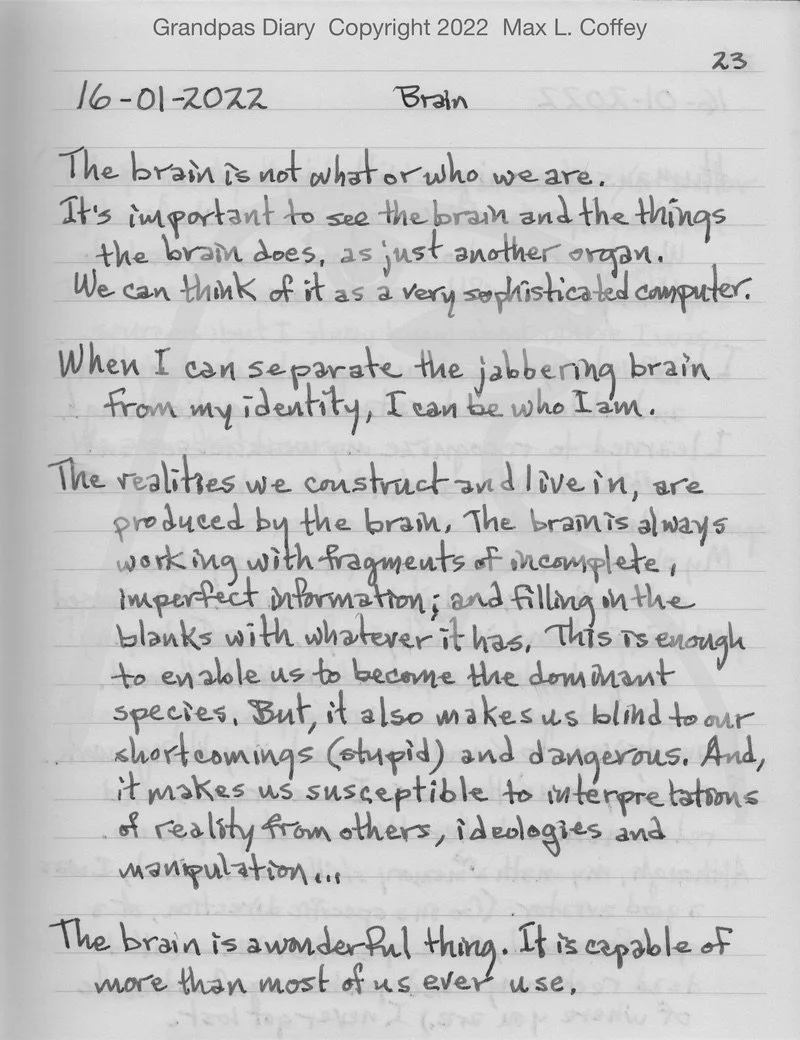 Grandpas Diary Copyright 2022 Max L. Coffey
23
16-01-2022 Brain
The brain is not what or who we are.
It's important to see the brain and the things
the brain does, as just another organ.
We can think of it as a very sophisticated computer.
When I can separate the jabbering brain
from my identity, I can be who I am.
The realities we construct and live in, are
produced by the brain. The brain is always
working with fragments of incomplete,
imperfect information; and filling in the
blanks with whatever it has. This is enough
to enable us to become the dominant
species. But, it also makes us blind to our
shortcomings (stupid) and dangerous. And,
it makes us susceptible to interpretations
of reality from others, ideologies and
manipulation...
The brain is a wonderful thing. It is capable of
more than most of us ever use.